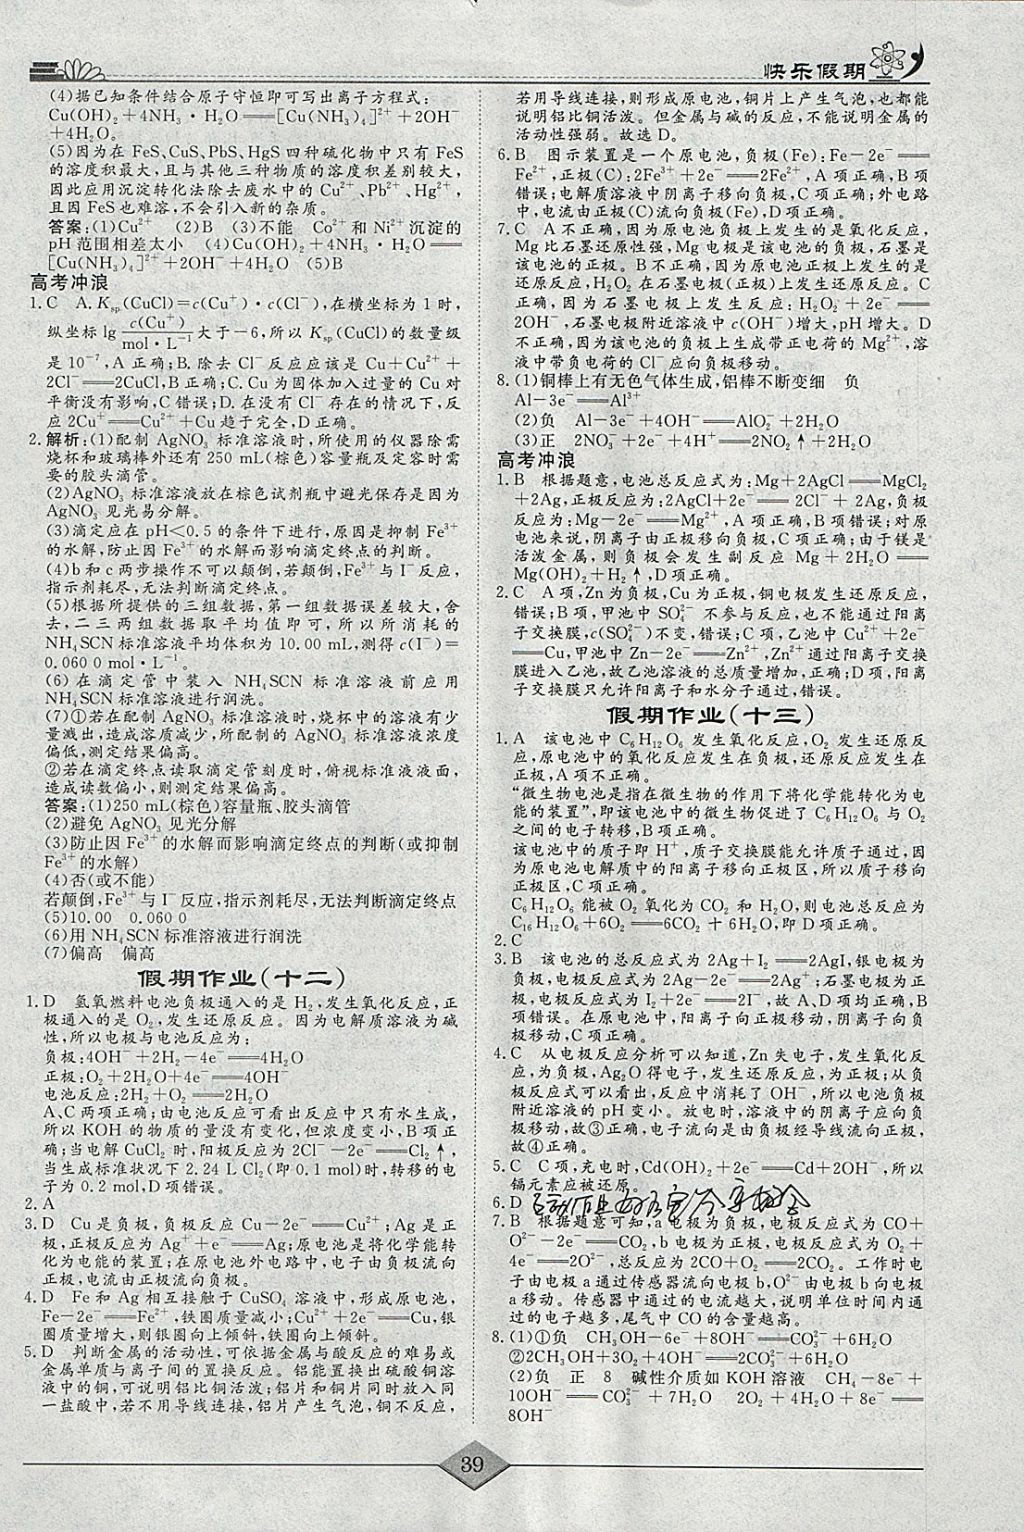 快乐假期
(4)据已知条件结合原子守恒即可写出离子方程式:
Cu(OH)₂+4NH₃·H₂O══[Cu(NH₃)₄]²⁺+2OH⁻
+4H₂O。
(5)因为在 FeS、CuS、PbS、HgS 四种硫化物中只有 FeS
的溶度积最大,且与其他三种物质的溶度积差别较大,
因此应用沉淀转化法除去废水中的 Cu²⁺、Pb²⁺、Hg²⁺,
且因 FeS 也难溶,不会引入新的杂质。
答案:(1)Cu²⁺ (2)B (3)不能 Co²⁺和 Ni²⁺沉淀的
pH 范围相差太小 (4)Cu(OH)₂+4NH₃·H₂O══
[Cu(NH₃)₄]²⁺+2OH⁻+4H₂O (5)B
高考冲浪
1.C A.Ksp(CuCl)=c(Cu⁺)·c(Cl⁻),在横坐标为 1 时,
纵坐标 lg c(Cu⁺)/mol·L⁻¹ 大于-6,所以 Ksp(CuCl)的数量级
是 10⁻⁷,A 正确;B.除去 Cl⁻反应应该是 Cu+Cu²⁺+
2Cl⁻══2CuCl,B 正确;C.Cu 为固体加入过量的 Cu 对
平衡没有影响,C 错误;D.在没有 Cl⁻存在的情况下,反
应 2Cu⁺══Cu²⁺+Cu 趋于完全,D 正确。
2.解析:(1)配制 AgNO₃ 标准溶液时,所使用的仪器除需
烧杯和玻璃棒外还有 250 mL(棕色)容量瓶及定容时需
要的胶头滴管。
(2)AgNO₃ 标准溶液放在棕色试剂瓶中避光保存是因为
AgNO₃ 见光易分解。
(3)滴定应在 pH<0.5 的条件下进行,原因是抑制 Fe³⁺
的水解,防止因 Fe³⁺的水解而影响滴定终点的判断。
(4)b 和 c 两步操作不可以颠倒,若颠倒,Fe³⁺与 I⁻反应,
指示剂耗尽,无法判断滴定终点。
(5)根据所提供的三组数据,第一组数据误差较大,舍
去,二三两组数据取平均值即可,所以所消耗的
NH₄SCN 标准溶液平均体积为 10.00 mL,测得 c(I⁻)=
0.060 0 mol·L⁻¹。
(6)在滴定管中装入 NH₄SCN 标准溶液前应用
NH₄SCN 标准溶液进行润洗。
(7)①若在配制 AgNO₃ 标准溶液时,烧杯中的溶液有少
量溅出,造成溶质减少,所配制的 AgNO₃ 标准溶液浓度
偏低,测定结果偏高。
②若在滴定终点读取滴定管刻度时,俯视标准液液面,
造成读数偏小,则测定结果偏高。
答案:(1)250 mL(棕色)容量瓶、胶头滴管
(2)避免 AgNO₃ 见光分解
(3)防止因 Fe³⁺的水解而影响滴定终点的判断(或抑制
Fe³⁺的水解)
(4)否(或不能)
若颠倒,Fe³⁺与 I⁻反应,指示剂耗尽,无法判断滴定终点
(5)10.00 0.060 0
(6)用 NH₄SCN 标准溶液进行润洗
(7)偏高 偏高
假期作业(十二)
1.D 氢氧燃料电池负极通入的是 H₂,发生氧化反应,正
极通入的是 O₂,发生还原反应。因为电解质溶液为碱
性,所以电极与电池反应为:
负极:4OH⁻+2H₂-4e⁻══4H₂O
正极:O₂+2H₂O+4e⁻══4OH⁻
电池反应:2H₂+O₂══2H₂O
A、C 两项正确;由电池反应可看出反应中只有水生成,
所以 KOH 的物质的量没有变化,但浓度变小,B 项正
确;当电解 CuCl₂ 时,阳极反应为 2Cl⁻-2e⁻══Cl₂↑,
当生成标准状况下 2.24 L Cl₂(即 0.1 mol)时,转移的电
子为 0.2 mol,D 项错误。
2.A
3.D Cu 是负极,负极反应 Cu-2e⁻══Cu²⁺;Ag 是正
极,正极反应为 Ag⁺+e⁻══Ag;原电池是将化学能转
化为电能的装置;在原电池外电路中,电子由负极流向
正极,电流由正极流向负极。
4.D Fe 和 Ag 相互接触于 CuSO₄ 溶液中,形成原电池,
Fe-2e⁻══Fe²⁺,铁圈质量减小;Cu²⁺+2e⁻══Cu,银
圈质量增大,则银圈向下倾斜,铁圈向上倾斜。
5.D 判断金属的活动性,可依据金属与酸反应的难易或
金属单质与离子间的置换反应。铝能置换出硫酸铜溶
液中的铜,可说明铝比铜活泼;铝片和铜片同时放入同
一盐酸中,若不用导线连接,铝片产生气泡,铜不反应,
若用导线连接,则形成原电池,铜片上产生气泡,也都能
说明铝比铜活泼。但金属与碱的反应,不能说明金属的
活动性强弱。故选 D。
6.B 图示装置是一个原电池,负极(Fe):Fe-2e⁻══
Fe²⁺,正极(C):2Fe³⁺+2e⁻══2Fe²⁺,A 项正确,B 项
错误;电解质溶液中阴离子移向负极,C 项正确;外电路
中,电流由正极(C)流向负极(Fe),D 项正确。
7.C A 不正确,因为原电池负极上发生的是氧化反应,
Mg 比石墨还原性强,Mg 电极是该电池的负极,石墨是
该电池的正极。B 不正确,因为原电池正极上发生的是
还原反应,H₂O₂ 在石墨电极(正极)上发生还原反应。C
正确,因为石墨电极上发生反应:H₂O₂+2e⁻══
2OH⁻,石墨电极附近溶液中 c(OH⁻)增大,pH 增大。D
不正确,因为该电池的负极上生成带正电荷的 Mg²⁺,溶
液中带负电荷的 Cl⁻应向负极移动。
8.(1)铜棒上有无色气体生成,铝棒不断变细 负
Al-3e⁻══Al³⁺
(2)负 Al-3e⁻+4OH⁻══AlO₂⁻+2H₂O
(3)正 2NO₃⁻+2e⁻+4H⁺══2NO₂↑+2H₂O
高考冲浪
1.B 根据题意,电池总反应式为:Mg+2AgCl══MgCl₂
+2Ag,正极反应为:2AgCl+2e⁻══2Cl⁻+2Ag,负极
反应为:Mg-2e⁻══Mg²⁺,A 项正确,B 项错误;对原
电池来说,阴离子由正极移向负极,C 项正确;由于镁是
活泼金属,则负极会发生副反应 Mg+2H₂O══
Mg(OH)₂+H₂↑,D 项正确。
2.C A 项,Zn 为负极,Cu 为正极,铜电极发生还原反应,
错误;B 项,甲池中 SO₄²⁻ 不参与反应,也不能通过阳离
子交换膜,c(SO₄²⁻)不变,错误;C 项,乙池中 Cu²⁺+2e⁻
══Cu,甲池中 Zn-2e⁻══Zn²⁺,Zn²⁺通过阳离子交换
膜进入乙池,故乙池溶液的总质量增加,正确;D 项,阳离
子交换膜只允许阳离子和水分子通过,错误。
假期作业(十三)
1.A 该电池中 C₆H₁₂O₆ 发生氧化反应,O₂ 发生还原反
应,原电池中的氧化反应在负极发生,还原反应发生在
正极,A 项不正确。
“微生物电池是指在微生物的作用下将化学能转化为电
能的装置”,即该电池中的微生物促进了 C₆H₁₂O₆ 与 O₂
之间的电子转移,B 项正确。
该电池中的质子即 H⁺,质子交换膜能允许质子通过,因
为原电池电解质中的阳离子移向正极区,所以质子移向
正极区,C 项正确。
C₆H₁₂O₆ 能被 O₂ 氧化为 CO₂ 和 H₂O,则电池总反应为
C₁₆H₁₂O₆+6O₂══6CO₂+6H₂O,即 D 项正确。
2.C
3.B 该电池的总反应式为 2Ag+I₂══2AgI,银电极为
负极,电极反应式为 2Ag-2e⁻══2Ag⁺;石墨电极为正
极,电极反应式为 I₂+2e⁻══2I⁻,故 A、D 项均正确,B
项错误。在原电池中,阳离子向正极移动,阴离子向负
极移动,C 项正确。
4.C 从电极反应分析可以知道,Zn 失电子,发生氧化反
应,为负极,Ag₂O 得电子,发生还原反应,为正极;从负
极反应式可以看出,反应中消耗了 OH⁻,所以电池负极
附近溶液的 pH 变小。放电时,溶液中的阴离子应向负
极移动,故③正确,电子流向是由负极经导线流向正极,
故④正确。
5.C C 项,充电时,Cd(OH)₂+2e⁻══Cd+2OH⁻,所以
镉元素应被还原。
6.D
7.B 根据题意可知,a 电极为负极,电极反应式为 CO+
O²⁻-2e⁻══CO₂,b 电极为正极,电极反应式为 O₂+
4e⁻══2O²⁻,总反应为 2CO+O₂══2CO₂。工作时电
子由电极 a 通过传感器流向电极 b,O²⁻由电极 b 向电极
a 移动。传感器中通过的电流越大,说明单位时间内通
过的电子越多,尾气中 CO 的含量越高。
8.(1)①负 CH₃OH-6e⁻+8OH⁻══CO₃²⁻+6H₂O
②2CH₃OH+3O₂+4OH⁻══2CO₃²⁻+6H₂O
(2)负 正 8 碱性介质如 KOH 溶液 CH₄-8e⁻+
10OH⁻══CO₃²⁻+7H₂O 2O₂+4H₂O+8e⁻══
8OH⁻
39